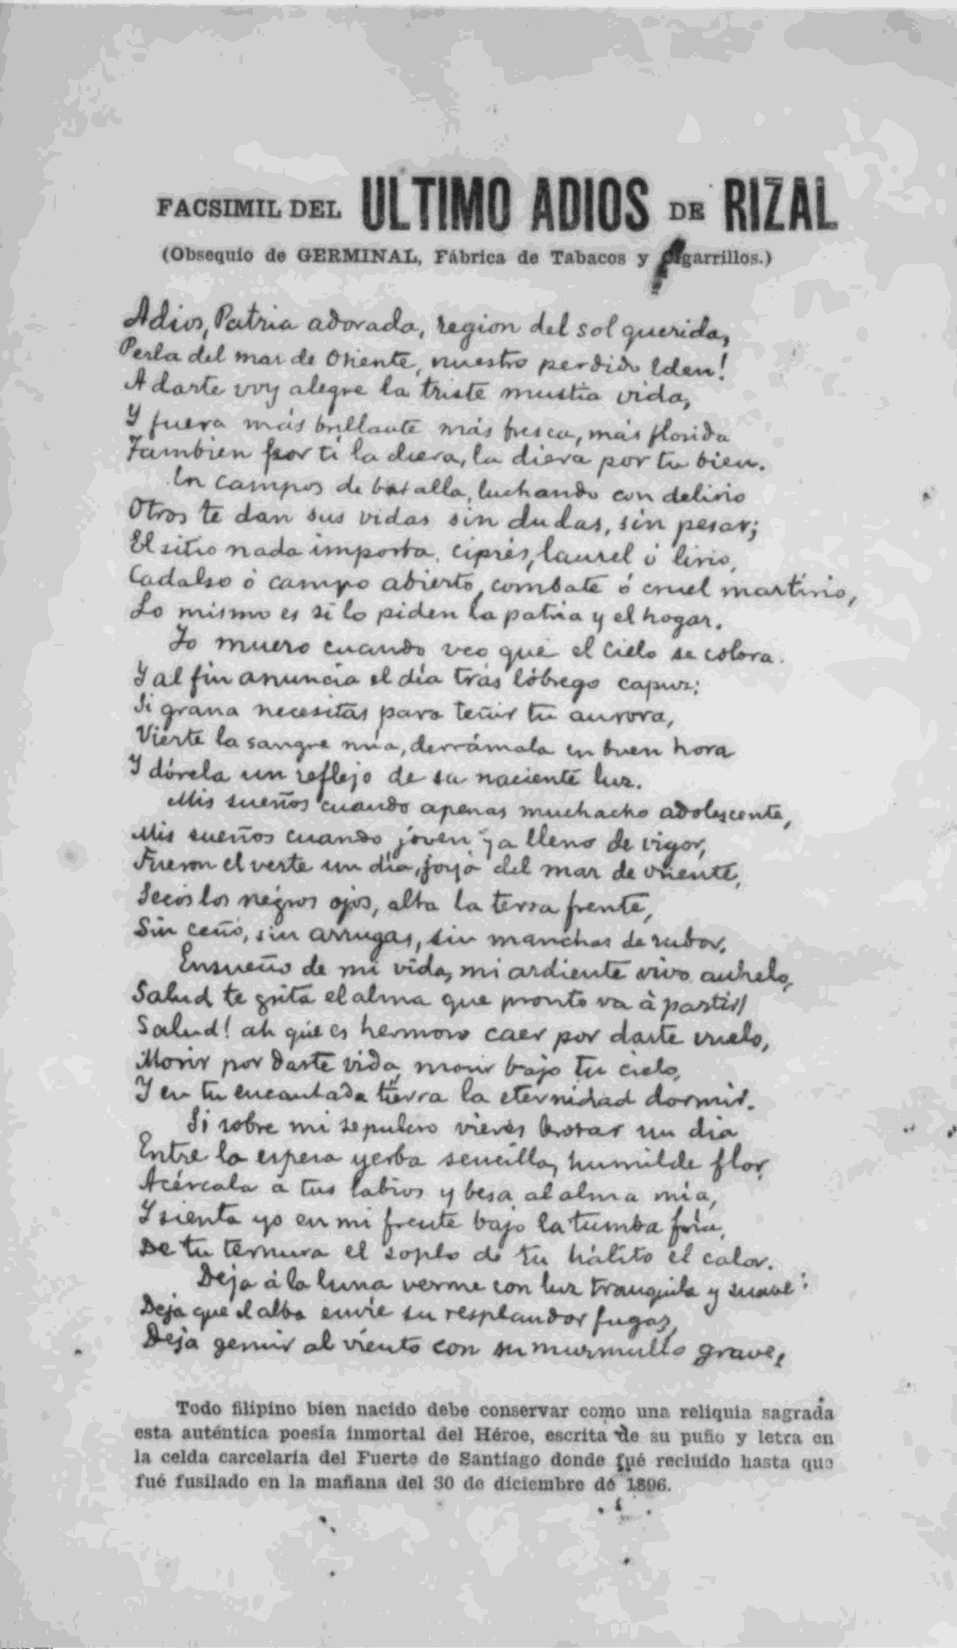 FACSIMIL DEL ULTIMO ADIOS DE RIZAL
(Obsequio de GERMINAL, Fábrica de Tabacos y Cigarrillos.)
Adios, Patria adorada, region del sol querida,
Perla del mar de Oriente, nuestro perdido Eden!
A darte voy alegre la triste mustia vida,
Y fuera más brillante más fresca, más florida
Tambien por tí la diera, la diera por tu bien.
En campos de batalla, luchando con delirio
Otros te dan sus vidas sin dudas, sin pesar;
El sitio nada importa, ciprés, laurel ó lirio,
Cadalso ó campo abierto, combate ó cruel martirio,
Lo mismo es si lo piden la patria y el hogar.
Yo muero cuando veo que el cielo se colora.
Y al fin anuncia el día trás lóbrego capuz;
Si grana necesitas para teñir tu aurora,
Vierte la sangre mía, derrámala en buen hora
Y dórela un reflejo de su naciente luz.
Mis sueños cuando apenas muchacho adolescente,
Mis sueños cuando joven ya lleno de vigor,
Fueron el verte un día, joya del mar de oriente,
Secos los negros ojos, alta la tersa frente,
Sin ceño, sin arrugas, sin manchas de rubor.
Ensueño de mi vida, mi ardiente vivo anhelo,
Salud te grita el alma que pronto va à partir!
Salud! ah que es hermoso caer por darte vuelo,
Morir por darte vida, morir bajo tu cielo,
Y en tu encantada tierra la eternidad dormir.
Si sobre mi sepulcro vieres brotar un dia
Entre la espesa yerba sencilla, humilde flor,
Acércala a tus labios y besa al alma mía,
Y sienta yo en mi frente bajo la tumba fría,
De tu ternura el soplo de tu hálito el calor.
Deja á la luna verme con luz tranquila y suave:
Deja que el alba envíe su resplandor fugaz,
Deja gemir al viento con su murmullo grave,
Todo filipino bien nacido debe conservar como una reliquia sagrada
esta auténtica poesía inmortal del Héroe, escrita de su puño y letra en
la celda carcelaria del Fuerte de Santiago donde fué recluido hasta que
fué fusilado en la mañana del 30 de diciembre de 1896.